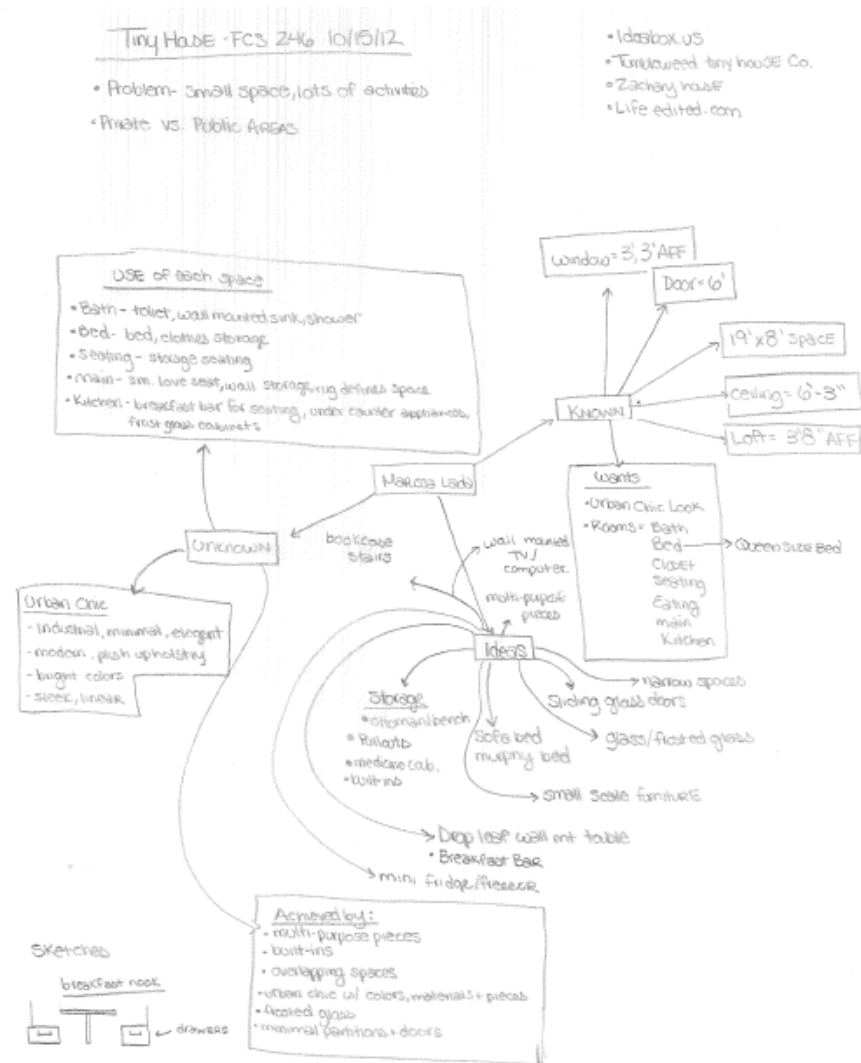 Tiny House - FCS 246 10/15/12
• Problem- small space, lots of activities
• Private vs. Public AREAS
• Ideabox.us
• Tumbleweed tiny house Co.
• Zachary house
• Life edited.com
USE of each space
• Bath- toilet, wall mounted sink, shower
• Bed- bed, clothes storage
• Seating- storage seating
• main- sm. love seat, wall storage, rug defines space
• Kitchen- breakfast bar for seating, under counter appliances,
frost glass cabinets
Window= 3', 3' AFF
Door= 6'
19'x8' Space
Ceiling= 6'-3"
Loft= 3'8" AFF
KNOWN
Marissa
UNKNOWN
Wants
• Urban Chic Look
• Rooms= Bath
Bed
Queen Size Bed
Closet
Seating
Eating
main
Kitchen
bookcase
stairs
wall mounted
TV/
computer.
multi-purpose
pieces
Urban Chic
- industrial, minimal, elegant
- modern, plush upholstry
- bright colors
- sleek, linear
Ideas
Storage
• ottoman/bench
• Pullouts
• medicine cab.
• built-ins
Sofa bed
murphy bed
narrow spaces
Sliding glass doors
glass/frosted glass
small scale furniture
Drop leaf wall mt table
• Breakfast Bar
mini fridge/freezer
Achieved by:
• multi-purpose pieces
• built-ins
• overlapping spaces
• urban chic w/ colors, materials + pieces
• frosted glass
• minimal partitions + doors
Sketches
breakfast nook
drawers